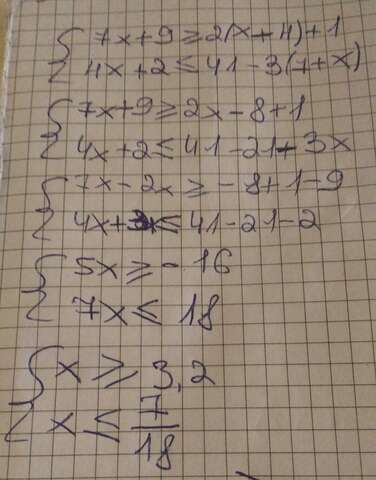 7x+9≥2(x+4)+1
4x+2≤41-3(7+x)
7x+9≥2x-8+1
4x+2≤41-21-3x
7x-2x≥-8+1-9
4x+3x≤41-21-2
5x≥-16
7x≤18
x≥3,2
x≤7/18